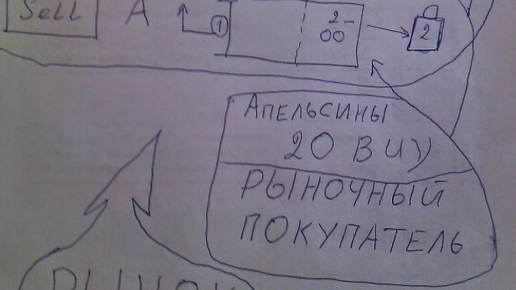 Sell A 1 2- 00 2
АПЕЛЬСИНЫ
20 ВИУ
РЫНОЧНЫЙ
ПОКУПАТЕЛЬ